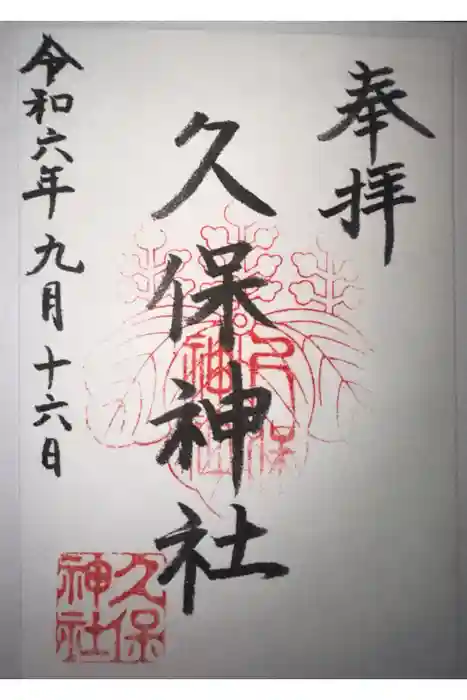 奉拝
久保神社
令和六年九月十六日
久保
神社
久保
神社